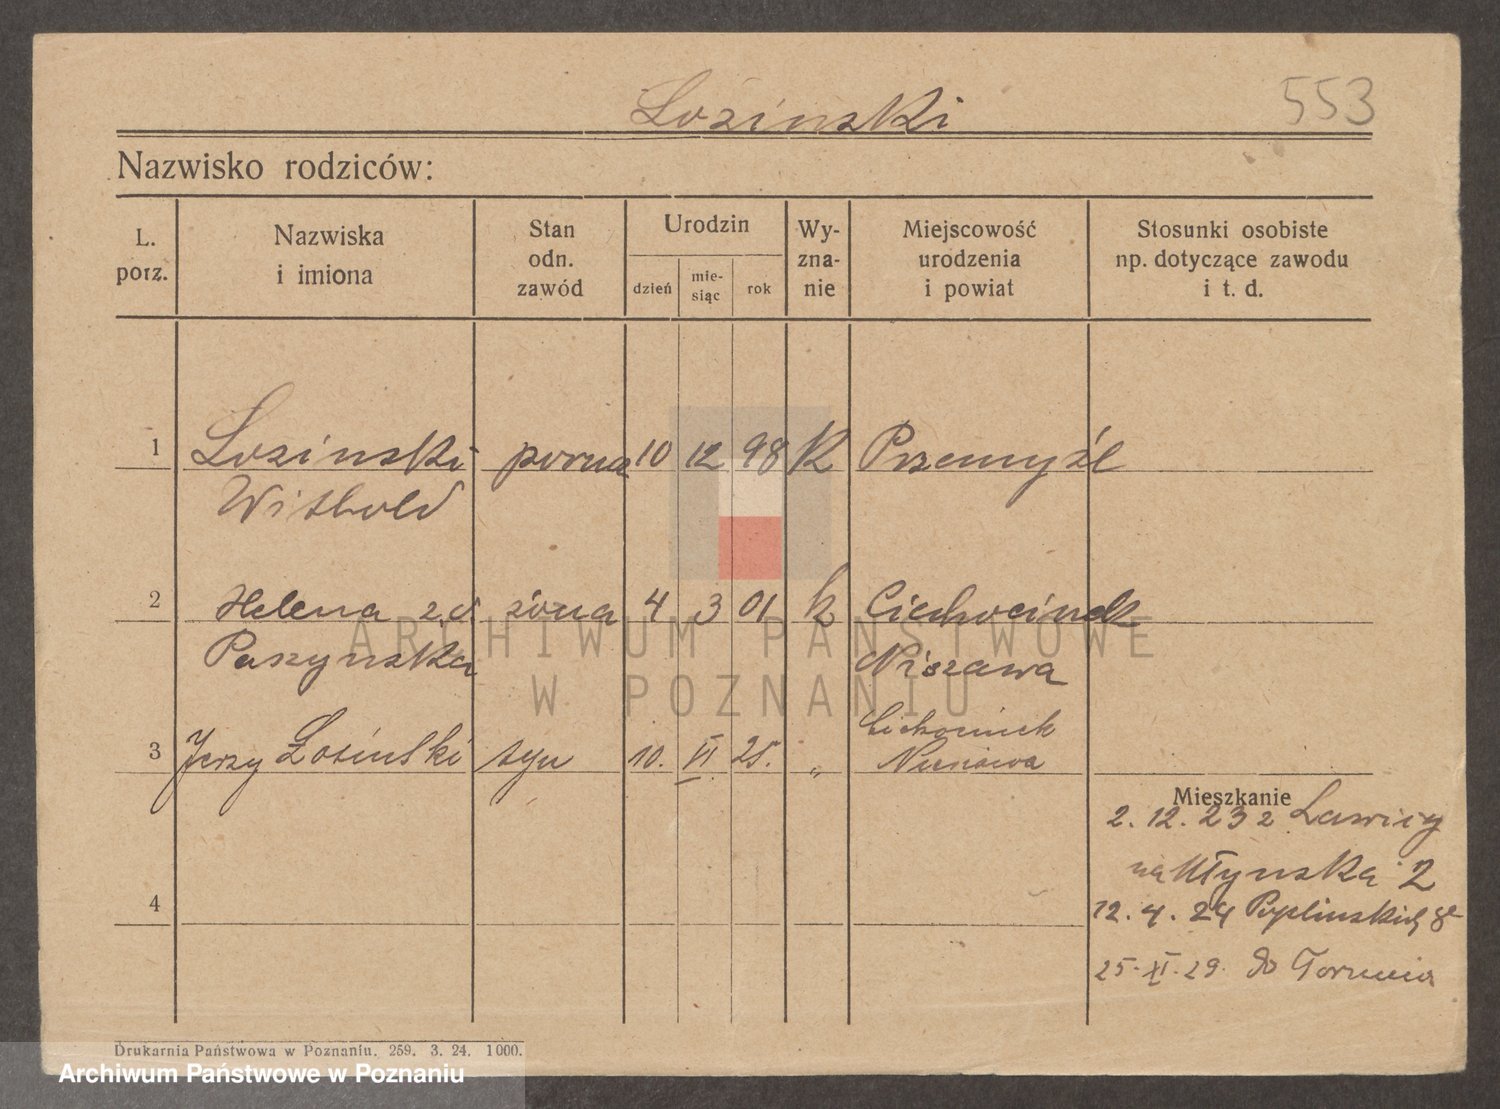 Łosinski 553
Nazwisko rodziców:
L. porz.
Nazwiska i imiona
Stan odn. zawód
Urodzin
dzień
mie-siąc
rok
Wy-zna-nie
Miejscowość urodzenia i powiat
Stosunki osobiste np. dotyczące zawodu i t. d.
1 Łosinski porucz 10 12 98 k Przemyśl
Withold
2 Helena z.d. żona 4 3 01 k Ciechocinek
Paszynska Niszawa
Ciechocinek
3 Jerzy Łosinski syn 10. VI 25. „ Nieszawa
Mieszkanie
2. 12. 23 z Ławicy
na Młynska 2
4
12. 4. 24 Poplinskich 8
25. XI. 29. do Torunia
ARCHIWUM PAŃSTWOWE
W POZNANIU
Drukarnia Państwowa w Poznaniu. 259. 3. 24. 1000.
Archiwum Państwowe w Poznaniu